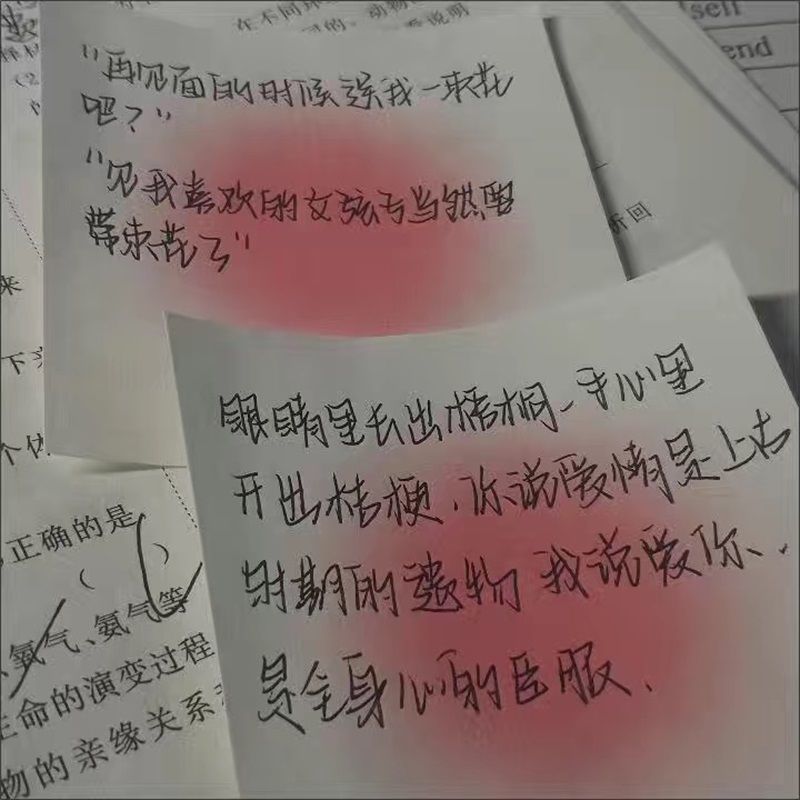 在不同环
同的。动物
看说明
self
end
"再见面的时候送我一束花
吧？"
"见我喜欢的女孩子当然要
带束花了"
折回
来
下
眼睛里长出梧桐、手心里
开出桔梗、你说爱情是上古
时期的遗物 我说爱你、
是全身心的臣服、
正确的是
（ ）
氧气、氨气等
生命的演变过程
物的亲缘关系